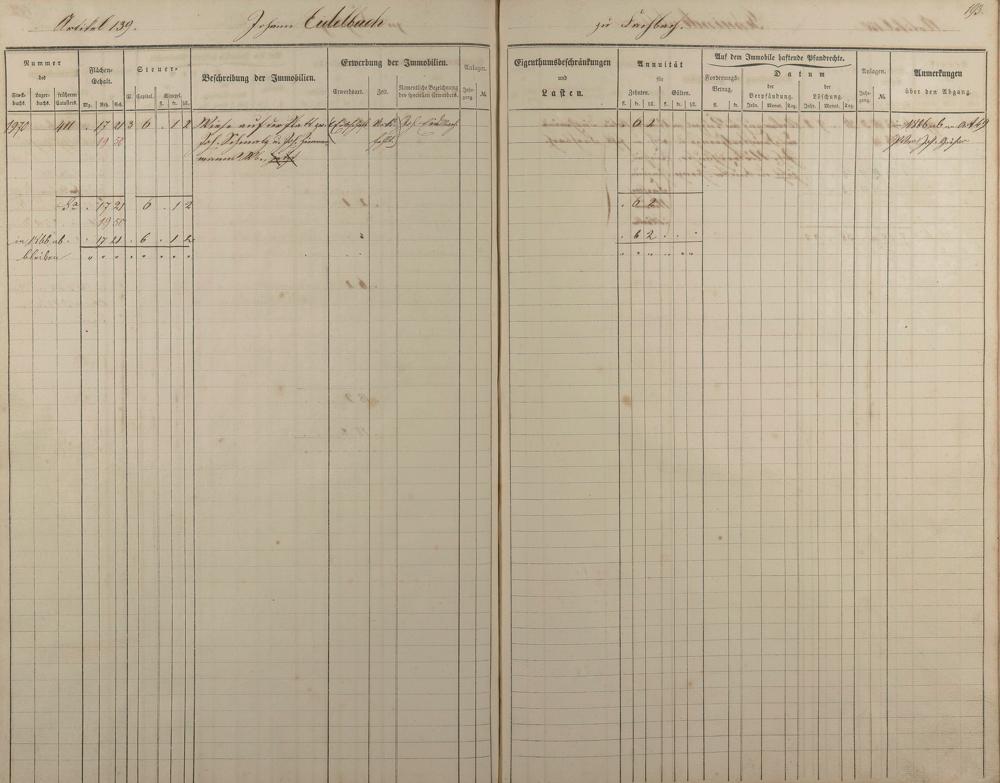 Artikel 139. Johann Eudelbach zu Fachbach. 193.
Nummer des
Stockbuchs. Lagerbuchs. früheren Catasters.
Flächen-Gehalt.
Mg. Rth. Sch.
Steuer-
Cl. Capital. Simpel.
fl. kr. hl.
Beschreibung der Immobilien.
Erwerbung der Immobilien.
Erwerbsart. Zeit. Namentliche Bezeichnung des speciellen Erwerbers.
Anlagen.
Jahrgang. №
Eigenthumsbeschränkungen
und
Lasten.
Annuität
für
Zehnten. Gülten.
fl. kr. hl. fl. kr. hl.
Auf dem Immobile haftende Pfandrechte.
Forderungs-Betrag.
fl. kr.
Datum
der Verpfändung. der Löschung.
Jahr. Monat. Tag. Jahr. Monat. Tag.
Anlagen.
Jahrgang. №
Anmerkungen
über den Abgang.
1970 411 . 17 21 3 6 . 1 2 Wiese auf der
. 6 2
in 1866 ab
19 50
Sa. . 17 21 6 . 1 2
. 6 2
19 50
in 1866 ab . 17 21 . 6 . 1 2
. 6 2 . . .
bleiben